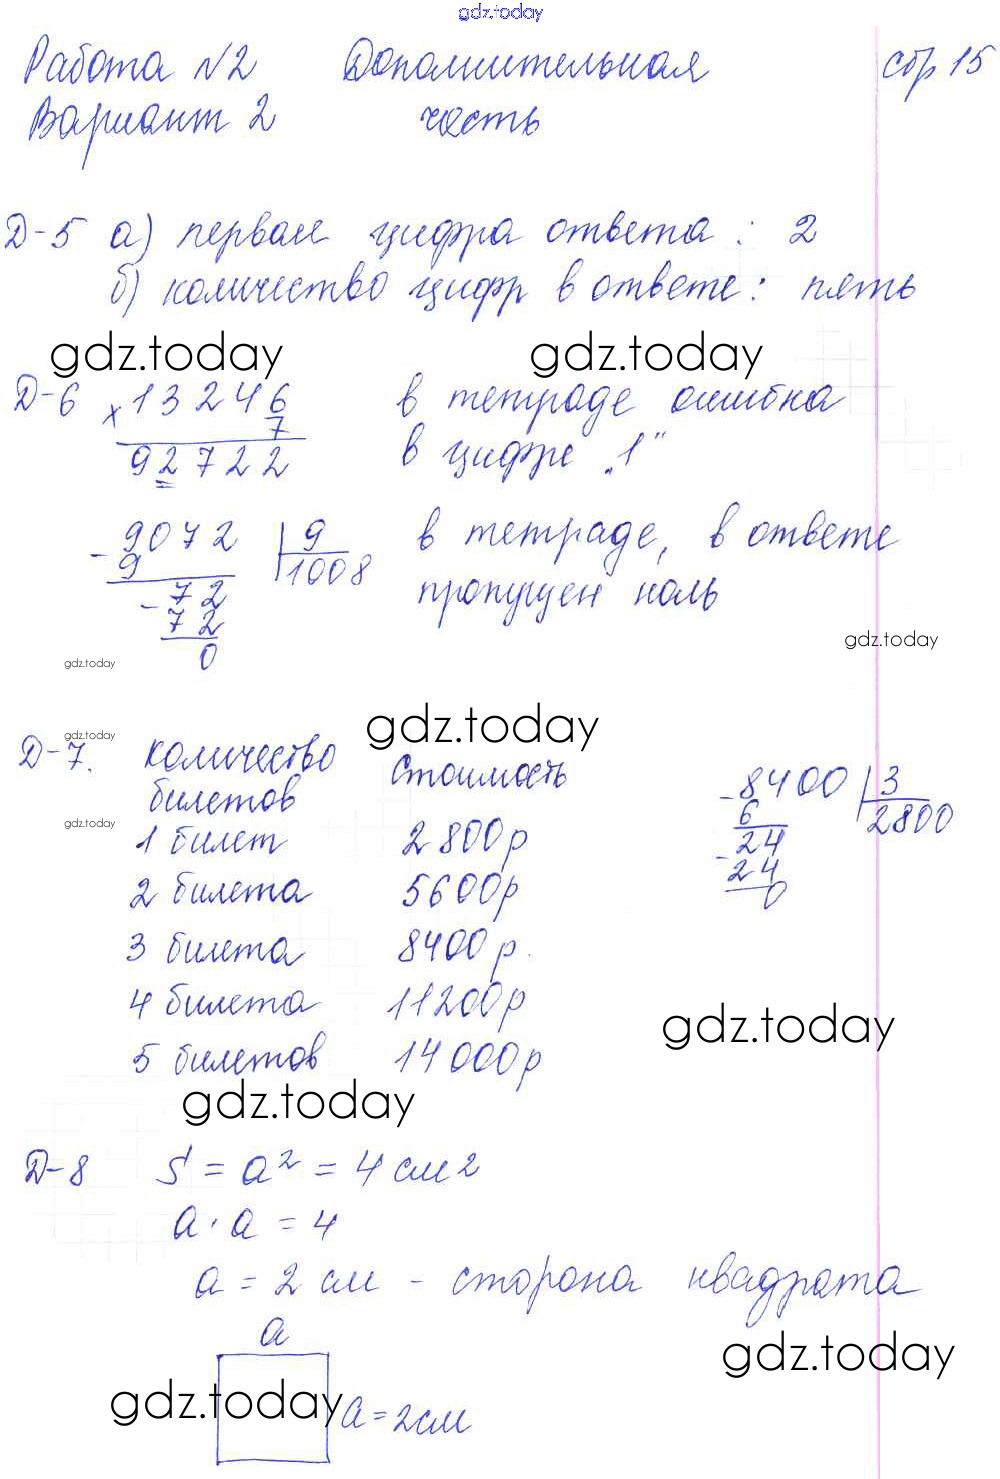 gdz.today
Работа №2 Дополнительная стр 15
Вариант 2 часть
Д-5 а) первая цифра ответа: 2
б) количество цифр в ответе: пять
gdz.today gdz.today
Д-6 x 13246 в тетраде ошибка
7
92722 в цифре „1”
- 9072 | 9 в тетраде, в ответе
9 1008 пропущен ноль
- 72
72
0
gdz.today
gdz.today
gdz.today
gdz.today
Д-7. количество стоимость
билетов
gdz.today
1 билет 2800р
2 билета 5600р
3 билета 8400р.
4 билета 11200р
5 билетов 14000р
- 8400 | 3
6 2800
24
- 24
0
gdz.today
gdz.today
Д-8 S = a² = 4 см2
a · a = 4
a = 2 см - сторона квадрата
a
gdz.today
gdz.today
a = 2см